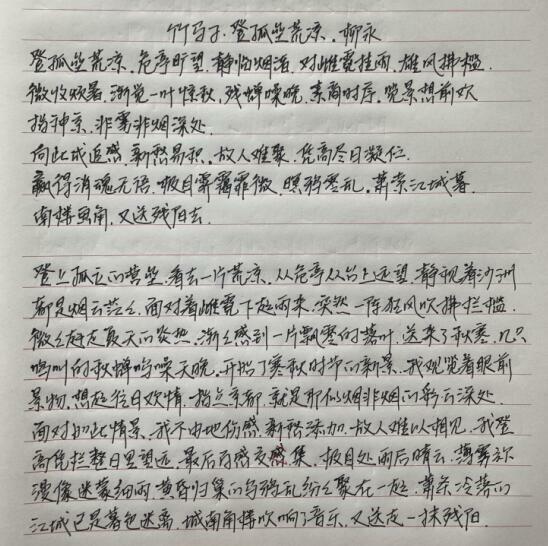 竹马子·登孤垒荒凉·柳永
登孤垒荒凉,危亭旷望,静临烟渚,对雌霓挂雨,雄风拂槛,
微收烦暑,渐觉一叶惊秋,残蝉噪晚,素商时序,览景想前欢
指神京,非雾非烟深处.
向此成追感,新愁易积,故人难聚,凭高尽日凝伫.
赢得消魂无语,极目霁霭霏微,暝鸦零乱,萧索江城暮.
南楼画角,又送残阳去.
登上孤立的营垒,看去一片荒凉,从危亭从台上远望,静视着沙洲
都是烟云茫茫,面对着雌霓下起雨来,突然一阵狂风吹拂栏槛.
微微赶走夏天的炎热,渐渐感到一片飘零的落叶,送来了秋寒,几只
鸣叫的秋蝉鸣噪天晚,开始了寒秋时节的新景,我观览着眼前
景物,想起往日欢情,指点京都,就是那似烟非烟的彩云深处.
面对如此情景,我不由地伤感,新愁添加,故人难以相见,我登
高凭栏整日里望远,最后百感交感集,极目处雨后晴云,薄雾弥
漫像迷蒙细雨,黄昏归集的乌鸦乱纷纷聚在一起,萧条冷落的
江城已是暮色迷离,城南角楼吹响了音乐,又送走一抹残阳.